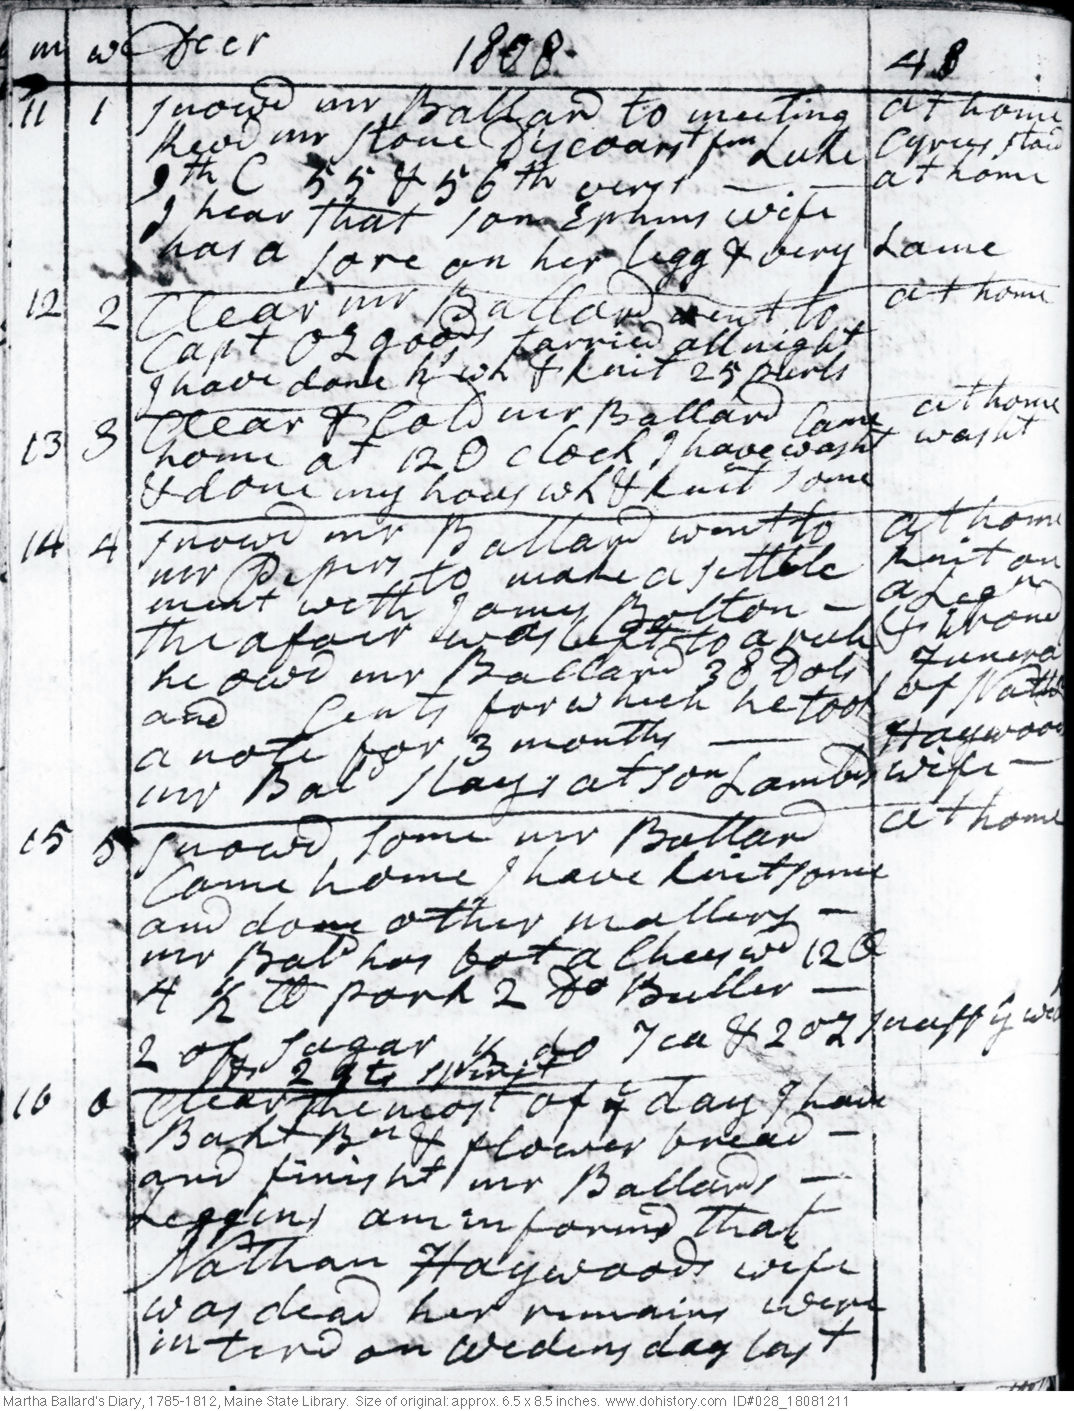 m w Decr 1808. 48
11 1 Snowd mr Ballard to meeting at home
Revd mr Stone Discoarst from Luke Cyrus staid
9th C 55 & 56th vers — at home
I hear that son Ephms wife
has a sore on her Legg & very Lame
12 2 Clear mr Ballard went to at home
Capt Ozgoods tarried all night
I have done hs wk & knit 25 purls
13 3 Clear & Cold mr Ballard Came at home
home at 12 O Clock I have washt washt
& done my hous wk & knit some
14 4 Snowd mr Ballard went to at home
mr Pipers to make a settle knit on
ment with James Bolton — a Legn
the afair was left to a rule & throné
he owd mr Ballard 38 Dols Funeral
and Cents for which he took of Nath
a note for 3 months — Haywoods
mr Bald stays at son Lambds wife —
15 5 Snowd some mr Ballard at home
Came home I have knit some
and done other matters —
mr Bald has bot a Chees wd 12
4 ½ lb pork 2 do Butter —
2 of Sugar ½ do Tea & 2 oz snuff
2 qts spirit
16 6 Clear the most of ye day I have
Bakt Bn & flower bread —
and finisht mr Ballards —
Leggins am informd that
Nathan Haywoods wife
was dead her remains were
interd on Wedensday last
Martha Ballard's Diary, 1785-1812, Maine State Library. Size of original: approx. 6.5 x 8.5 inches. www.dohistory.com ID#028_18081211